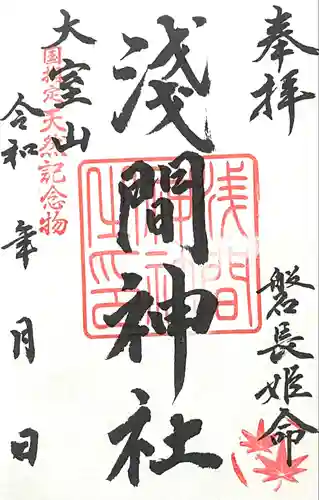 奉拝
磐長姫命
淺間神社
大室山
国指定天然記念物
令和 年 月 日